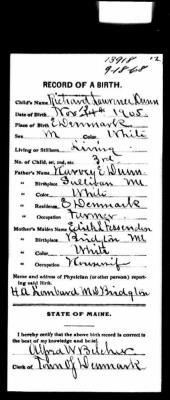 13918 12
9-18-68
RECORD OF A BIRTH.
Child's Name, Richard Lawrence Dunn
Date of Birth, Nov 24th 1905.
Place of Birth, E Denmark
Sex, M Color, White
Living or Stillborn, Living
No. of Child, 1st, 2nd, etc. 3rd
Father's Name, Harvey E. Dunn
" Birthplace, Sullivan Me
" Color, White
" Residence, E Denmark
" Occupation, Farmer
Mother's Maiden Name, Edith L Fessenden
" Birthplace, Bridgton Me
" Color, White
" Occupation, Housewife
Name and address of Physician (or other persons) reporting said Birth.
H.A. Lombard M.D. Bridgton
STATE OF MAINE.
I hereby certify that the above birth record is correct to
the best of my knowledge and belief.
Alfred W Belcher
Clerk of Town Of Denmark